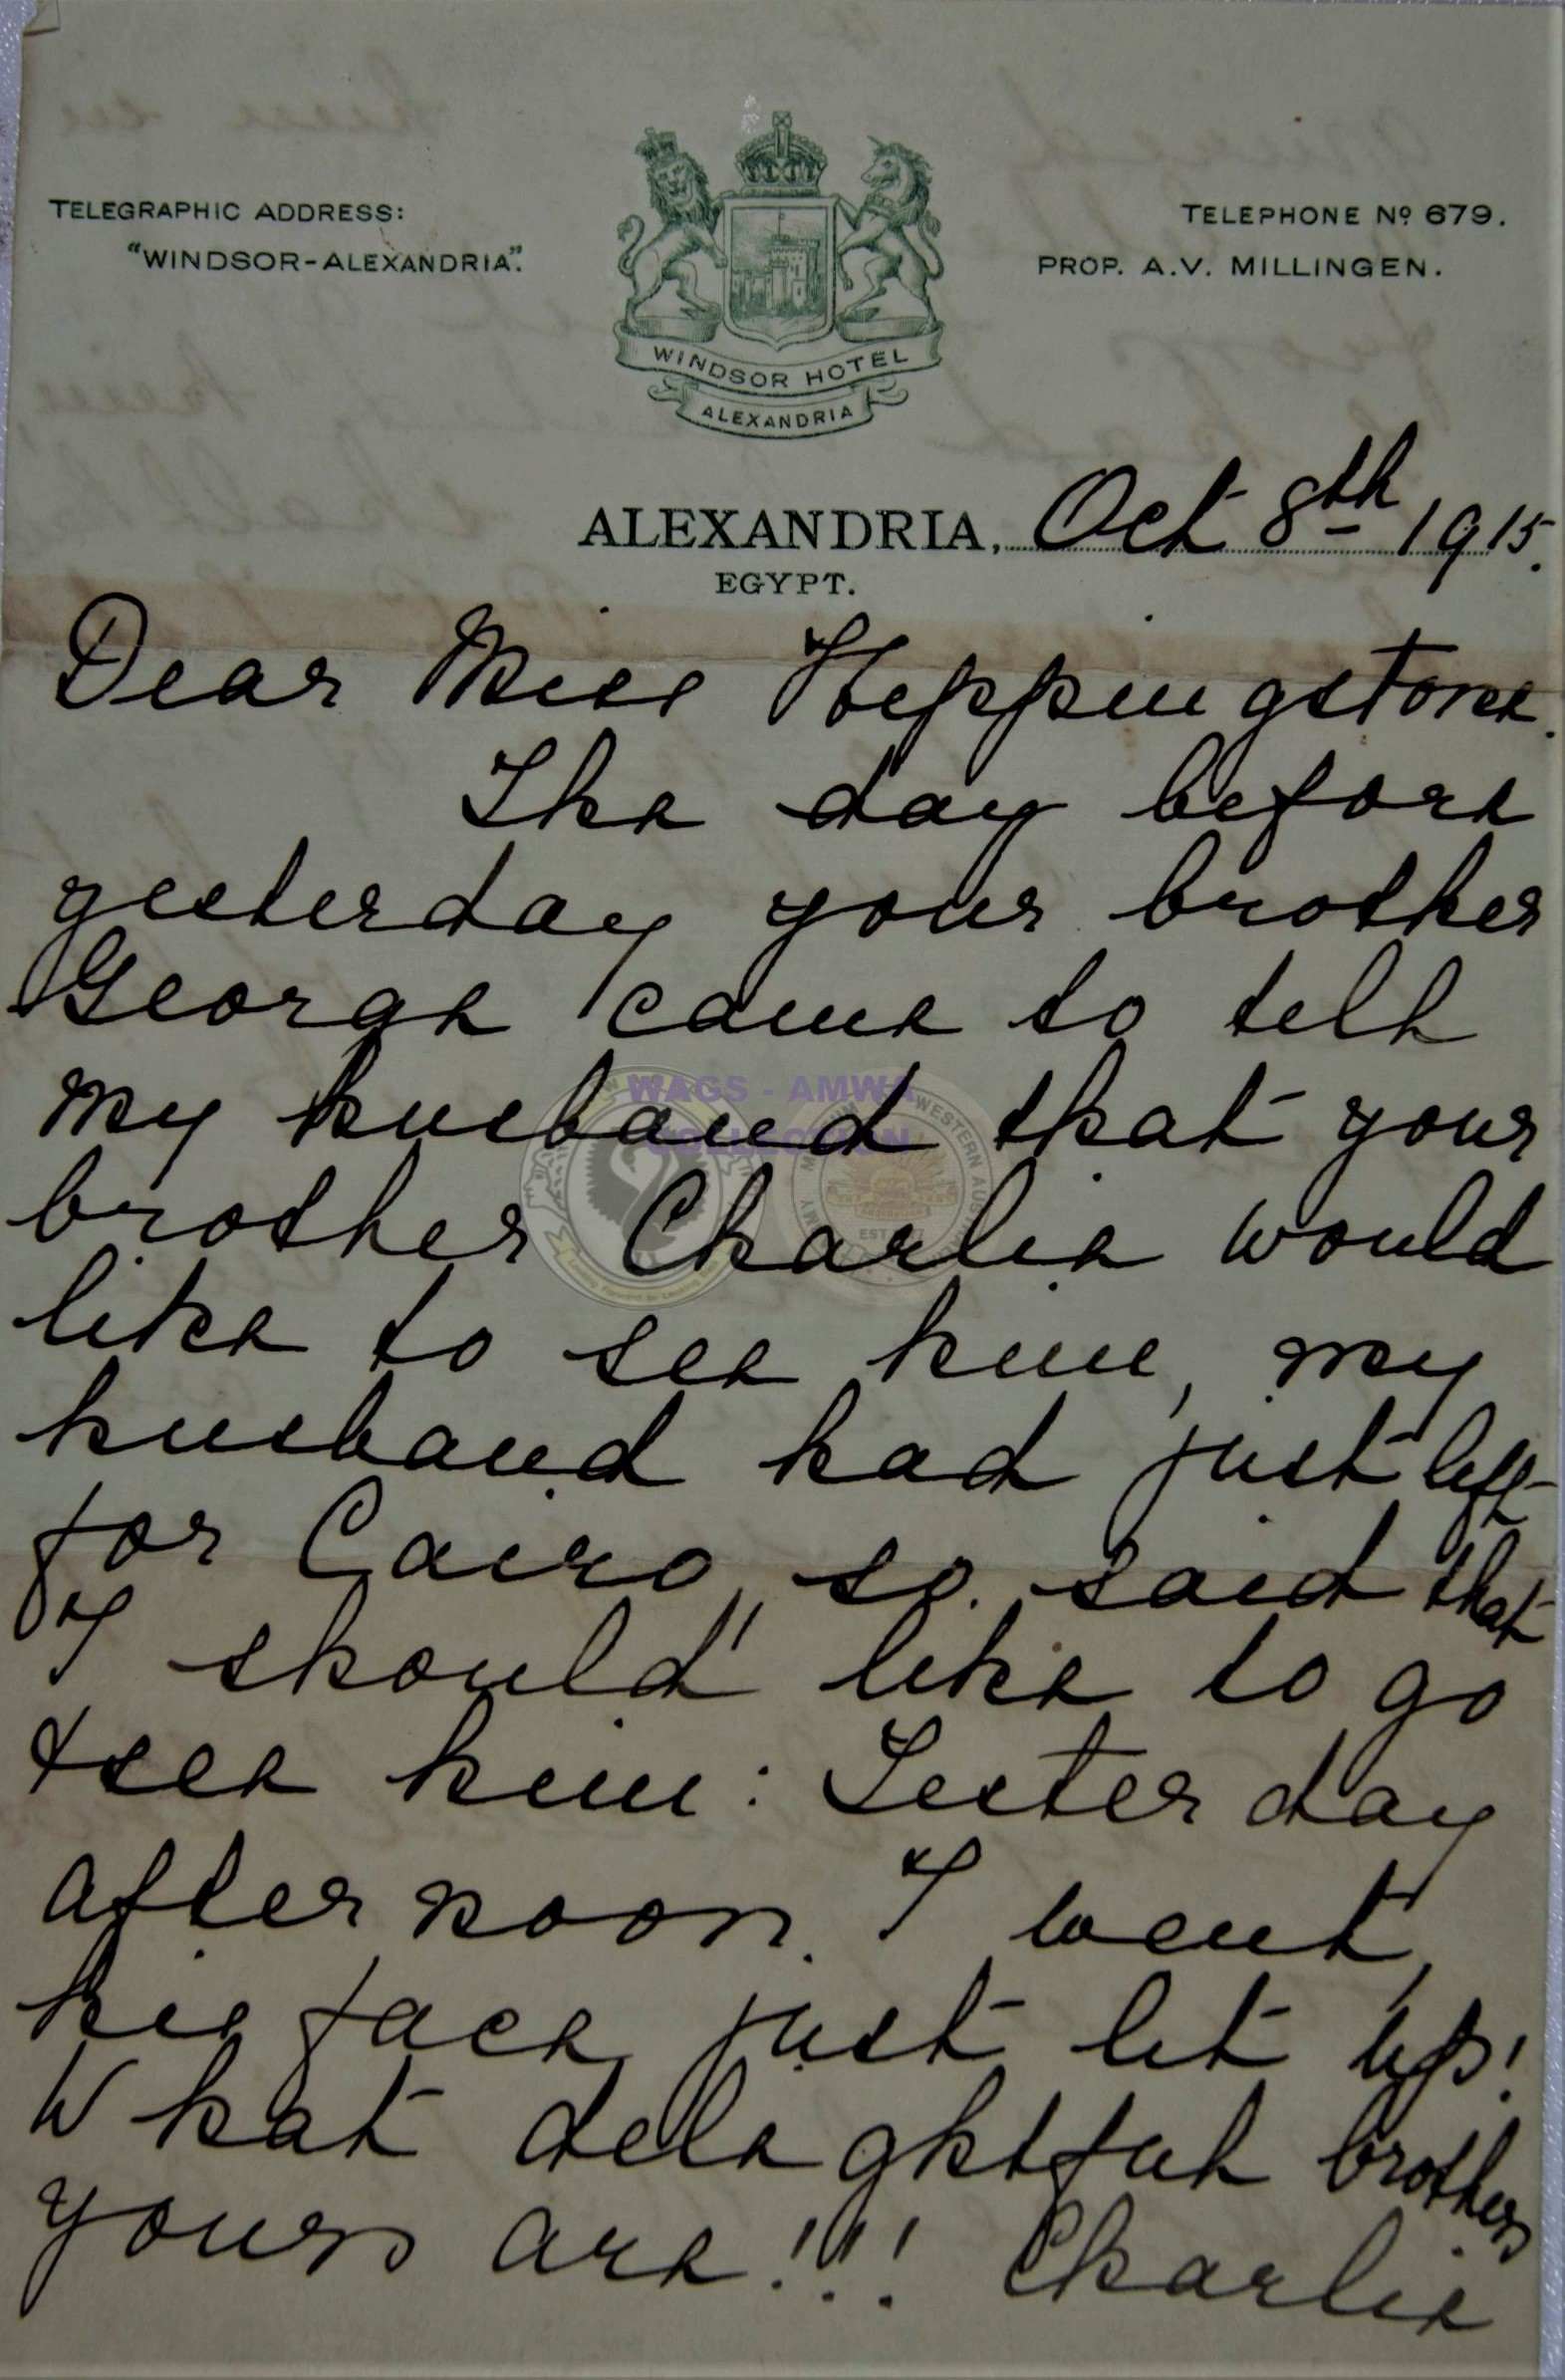 TELEGRAPHIC ADDRESS:
"WINDSOR-ALEXANDRIA".
TELEPHONE Nº 679.
PROP. A.V. MILLINGEN.
WINDSOR HOTEL
ALEXANDRIA
ALEXANDRIA, Oct 8th 1915.
EGYPT.
Dear Miss Heppingstone.
The day before
yesterday your brother
George came to tell
my husband that your
brother Charlie would
like to see him, my
husband had just left
for Cairo, so said that
I should like to go
& see him: Yesterday
afternoon I went,
his face just lit up!
What delightful brothers
yours are!!! Charlie
WAGS - AMWA
COLLECTION